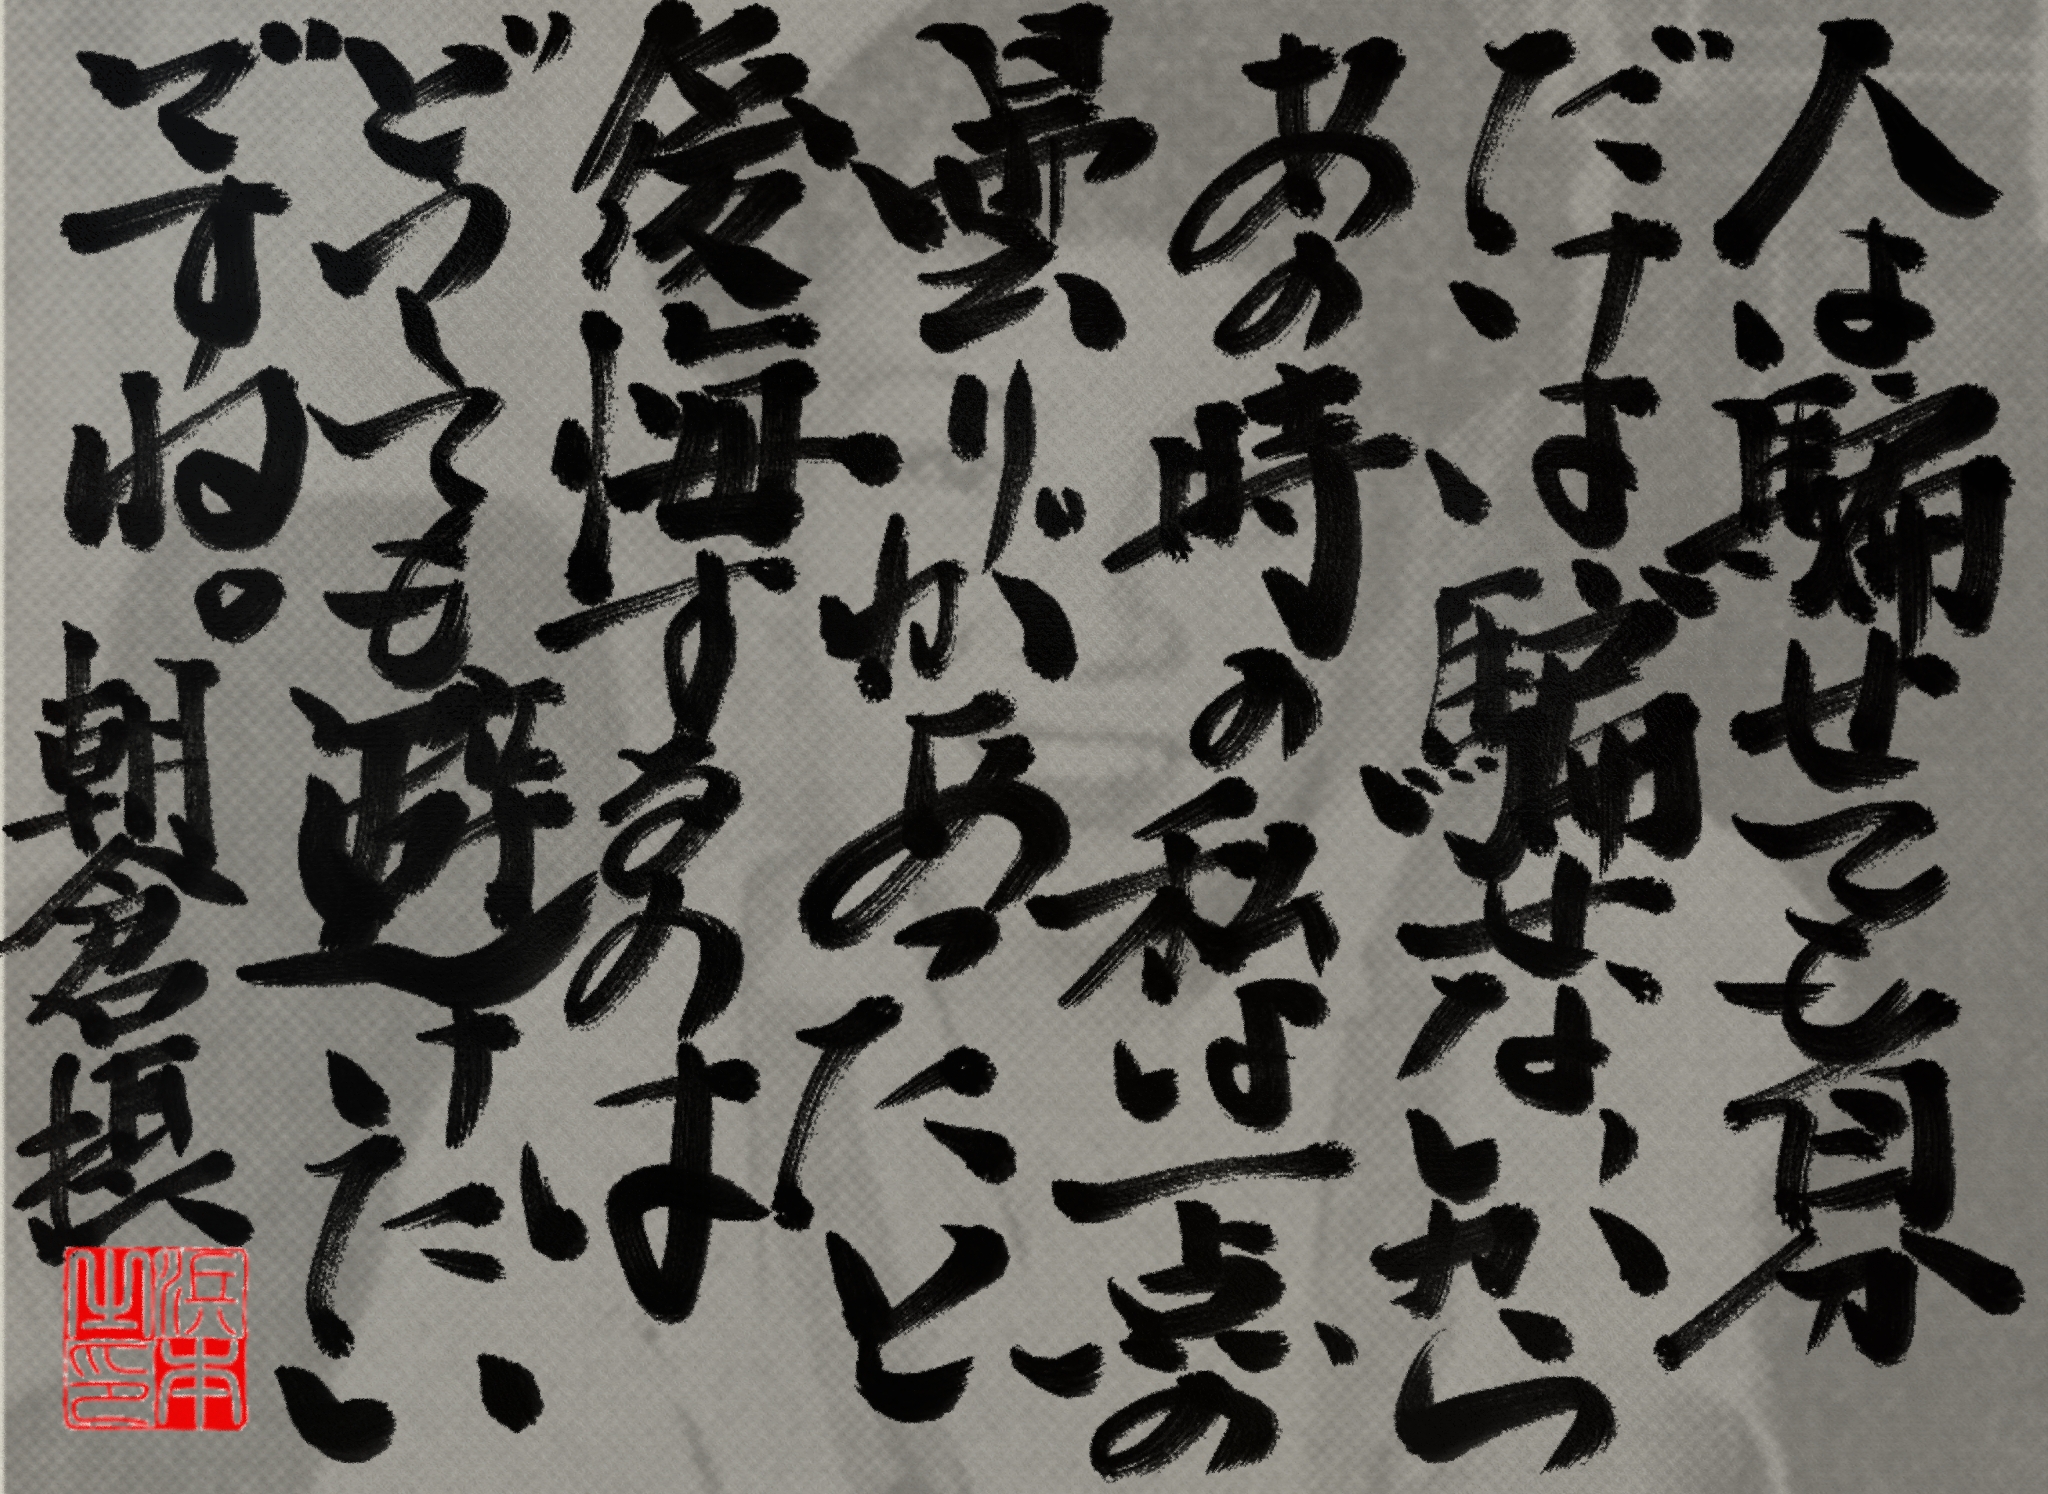 人は騙せても自分
だけは騙せないから
あの時の私は一点の
曇りがあったと
後悔するのは
どうしても避けたい
ですね。朝倉摂
浜本
之印